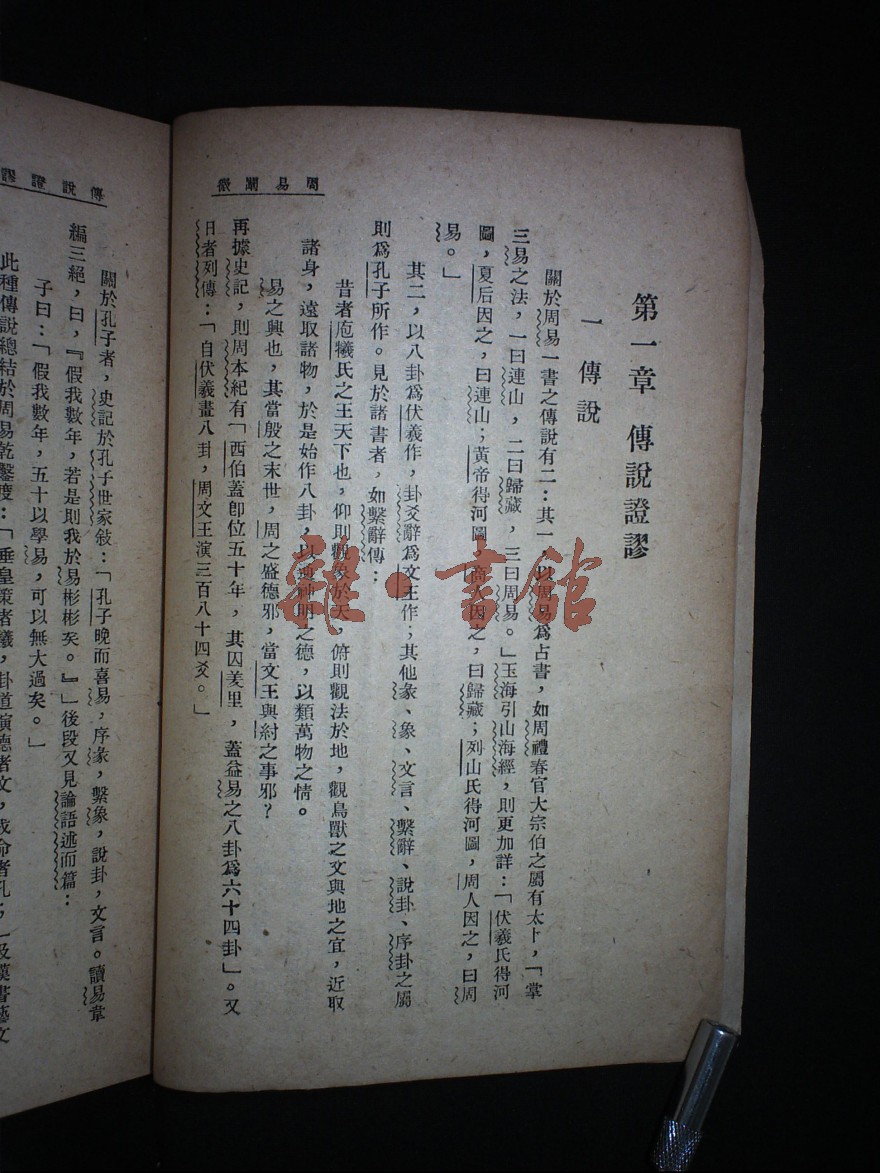 周易闡微
第一章　傳說證謬
一　傳說
關於周易一書之傳說有二：其一，以周易爲占書，如周禮春官大宗伯之屬有太卜，「掌
三易之法，一曰連山，二曰歸藏，三曰周易。」玉海引山海經，則更加詳：「伏羲氏得河
圖，夏后因之，曰連山；黃帝得河圖，商人因之，曰歸藏；列山氏得河圖，周人因之，曰周
易。」
其二，以八卦爲伏羲作，卦爻辭爲文王作；其他彖、象、文言、繫辭、說卦、序卦之屬
則爲孔子所作。見於諸書者，如繫辭傳：
昔者庖犧氏之王天下也，仰則觀象於天，俯則觀法於地，觀鳥獸之文與地之宜，近取
諸身，遠取諸物，於是始作八卦，以通神明之德，以類萬物之情。
易之興也，其當殷之末世，周之盛德邪，當文王與紂之事邪？
再據史記，則周本紀有「西伯蓋卽位五十年，其囚羑里，蓋益易之八卦爲六十四卦」。又
日者列傳：「自伏羲畫八卦，周文王演三百八十四爻。」
傳說證謬
關於孔子者，史記於孔子世家敍：「孔子晚而喜易，序彖，繫象，說卦，文言。讀易韋
編三絕，曰，『假我數年，若是則我於易彬彬矣。』」後段又見論語述而篇：
子曰：「假我數年，五十以學易，可以無大過矣。」
此種傳說總結於周易乾鑿度：「垂皇策者犧，卦道演德者文，成命者孔；」及漢書藝文
雜·書館